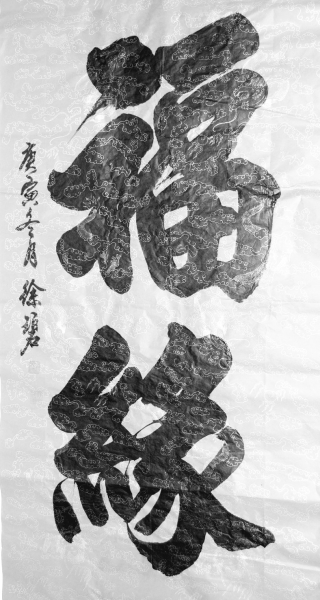 福緣
庚寅冬月 徐碧